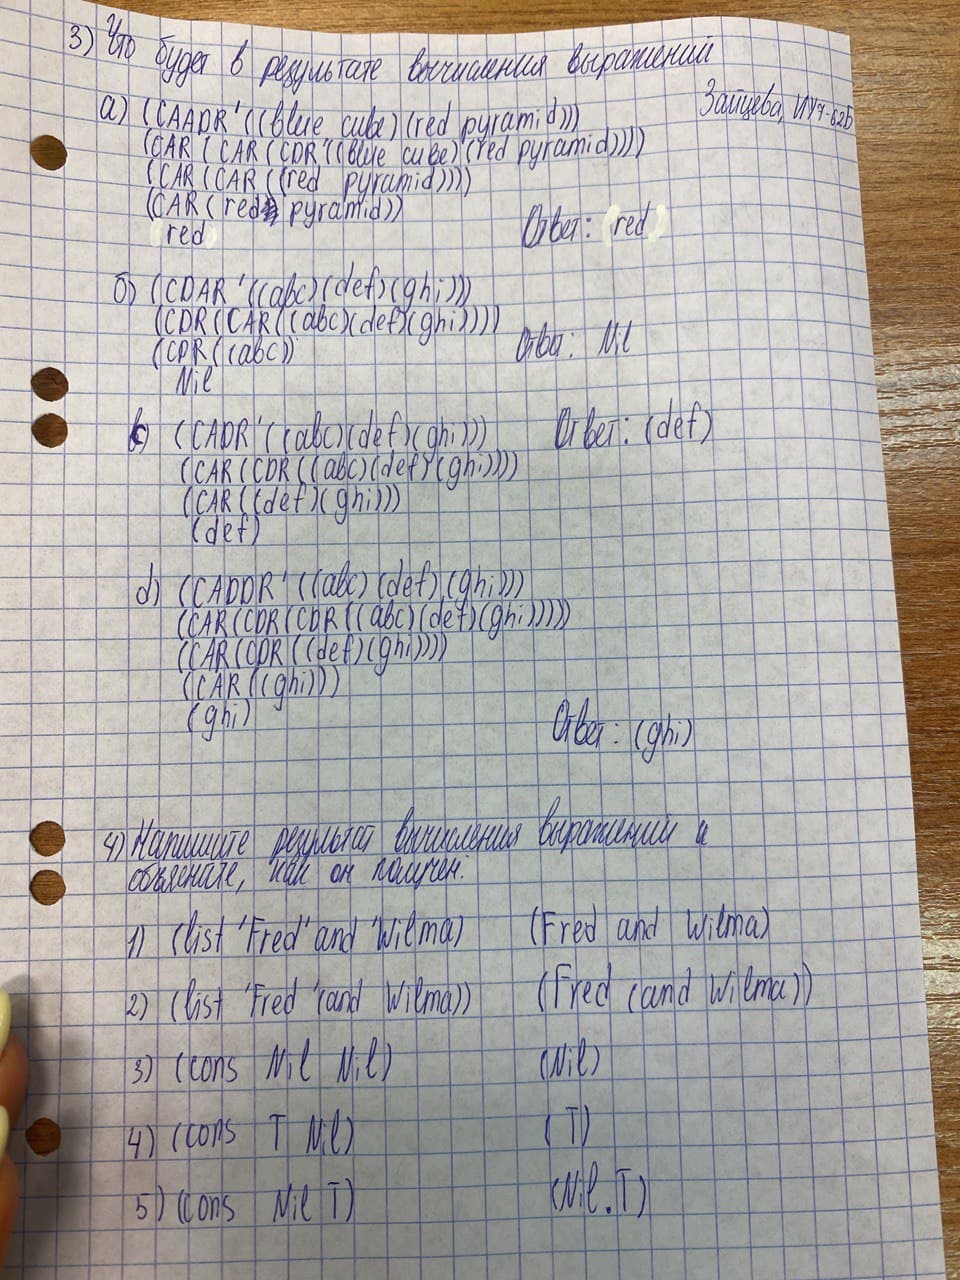 3) Что будет в результате вычисления выражений
Зайцева, ИУ7-62Б
а) (CAADR'((blue cube)(red pyramid)))
(CAR (CAR (CDR'((blue cube)(red pyramid))))
(CAR (CAR ((red pyramid))))
(CAR (red pyramid))
(red)
Ответ: (red)
б) (CDAR '((abc)(def)(ghi)))
(CDR((CAR((abc)(def)(ghi))))
(CDR((abc))
Nil
Ответ: Nil
c) (CADR'((abc)(def)(ghi)))
Ответ: (def)
(CAR(CDR((abc)(def)(ghi))))
(CAR((def)(ghi)))
(def)
d) (CADDR'((abc)(def)(ghi)))
(CAR(CDR(CDR((abc)(def)(ghi)))))
(CAR(CDR((def)(ghi))))
(CAR((ghi)))
(ghi)
Ответ: (ghi)
4) Напишите результат вычисления выражений и
объясните, как он получен:
1) (list 'Fred 'and 'Wilma) (Fred and Wilma)
2) (list 'Fred '(and Wilma)) (Fred (and Wilma))
3) (cons Nil Nil) (Nil)
4) (cons T Nil) (T)
5) (cons Nil T) (Nil.T)